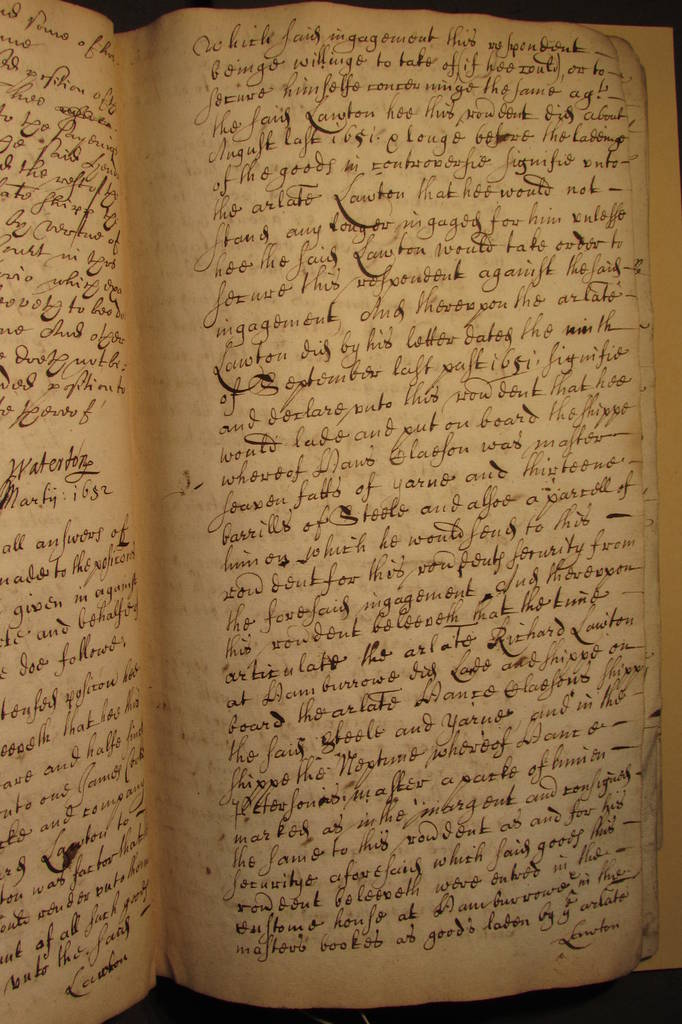 nd some of the
me
position of
thee
to the
the said
d the rest of the
late shipp
By vertue of
Court in this
which
to bee
me And other
doeth not be
position to
thereof
Waterton
Martij: 1652
all answers of
made to the position
given in against
and behalfe
doe followe,
position hee
beleeveth that hee this
are and halfe
unto one James
and company
Lawton to
ton was factor that
render unto them
unt of all such goods
unto the said
Lawton
which said ingagement this respondent
beinge willinge to take of (if hee could) or to
secure himselfe concerninge the same agt
the said Lawton hee this rondent did about
August last 1651. & longe before the ladeinge
of the goods in controversie signifie unto
the arlate Lawton that hee would not
stand any longer ingaged for him unlesse
hee the said Lawton would take order to
secure this respondent against the said
ingagement, And thereupon the arlate
Lawton did by his letter dated the ninth
of September last past 1651. signifie
and declare unto this rondent that hee
would lade and put on board the shippe
whereof Hans Claeson was master
seaven fatts of yarne and thirteene
barrills of Steele and alsoe a parcell of
linnen which he would send to this
rondent for this rondents security from
the foresaid ingagement And thereupon
this rondent beleeveth that the time
articulate the arlate Richard Lawton
at Hamburrowe did Lade and shippe on
board the arlate Hance Claesons shipp
the said Steele and yarne, and in the
shippe the Neptune whereof Hance
Peterson is master a packe of linnen
marked as in the margent and consigned
the same to this rondent as and for his
securitye aforesaid which said goods this
rondent beleeveth were entred in the
custome house at Hamburrowe & in the
masters bookes as goods laden by ye arlate
Lawton